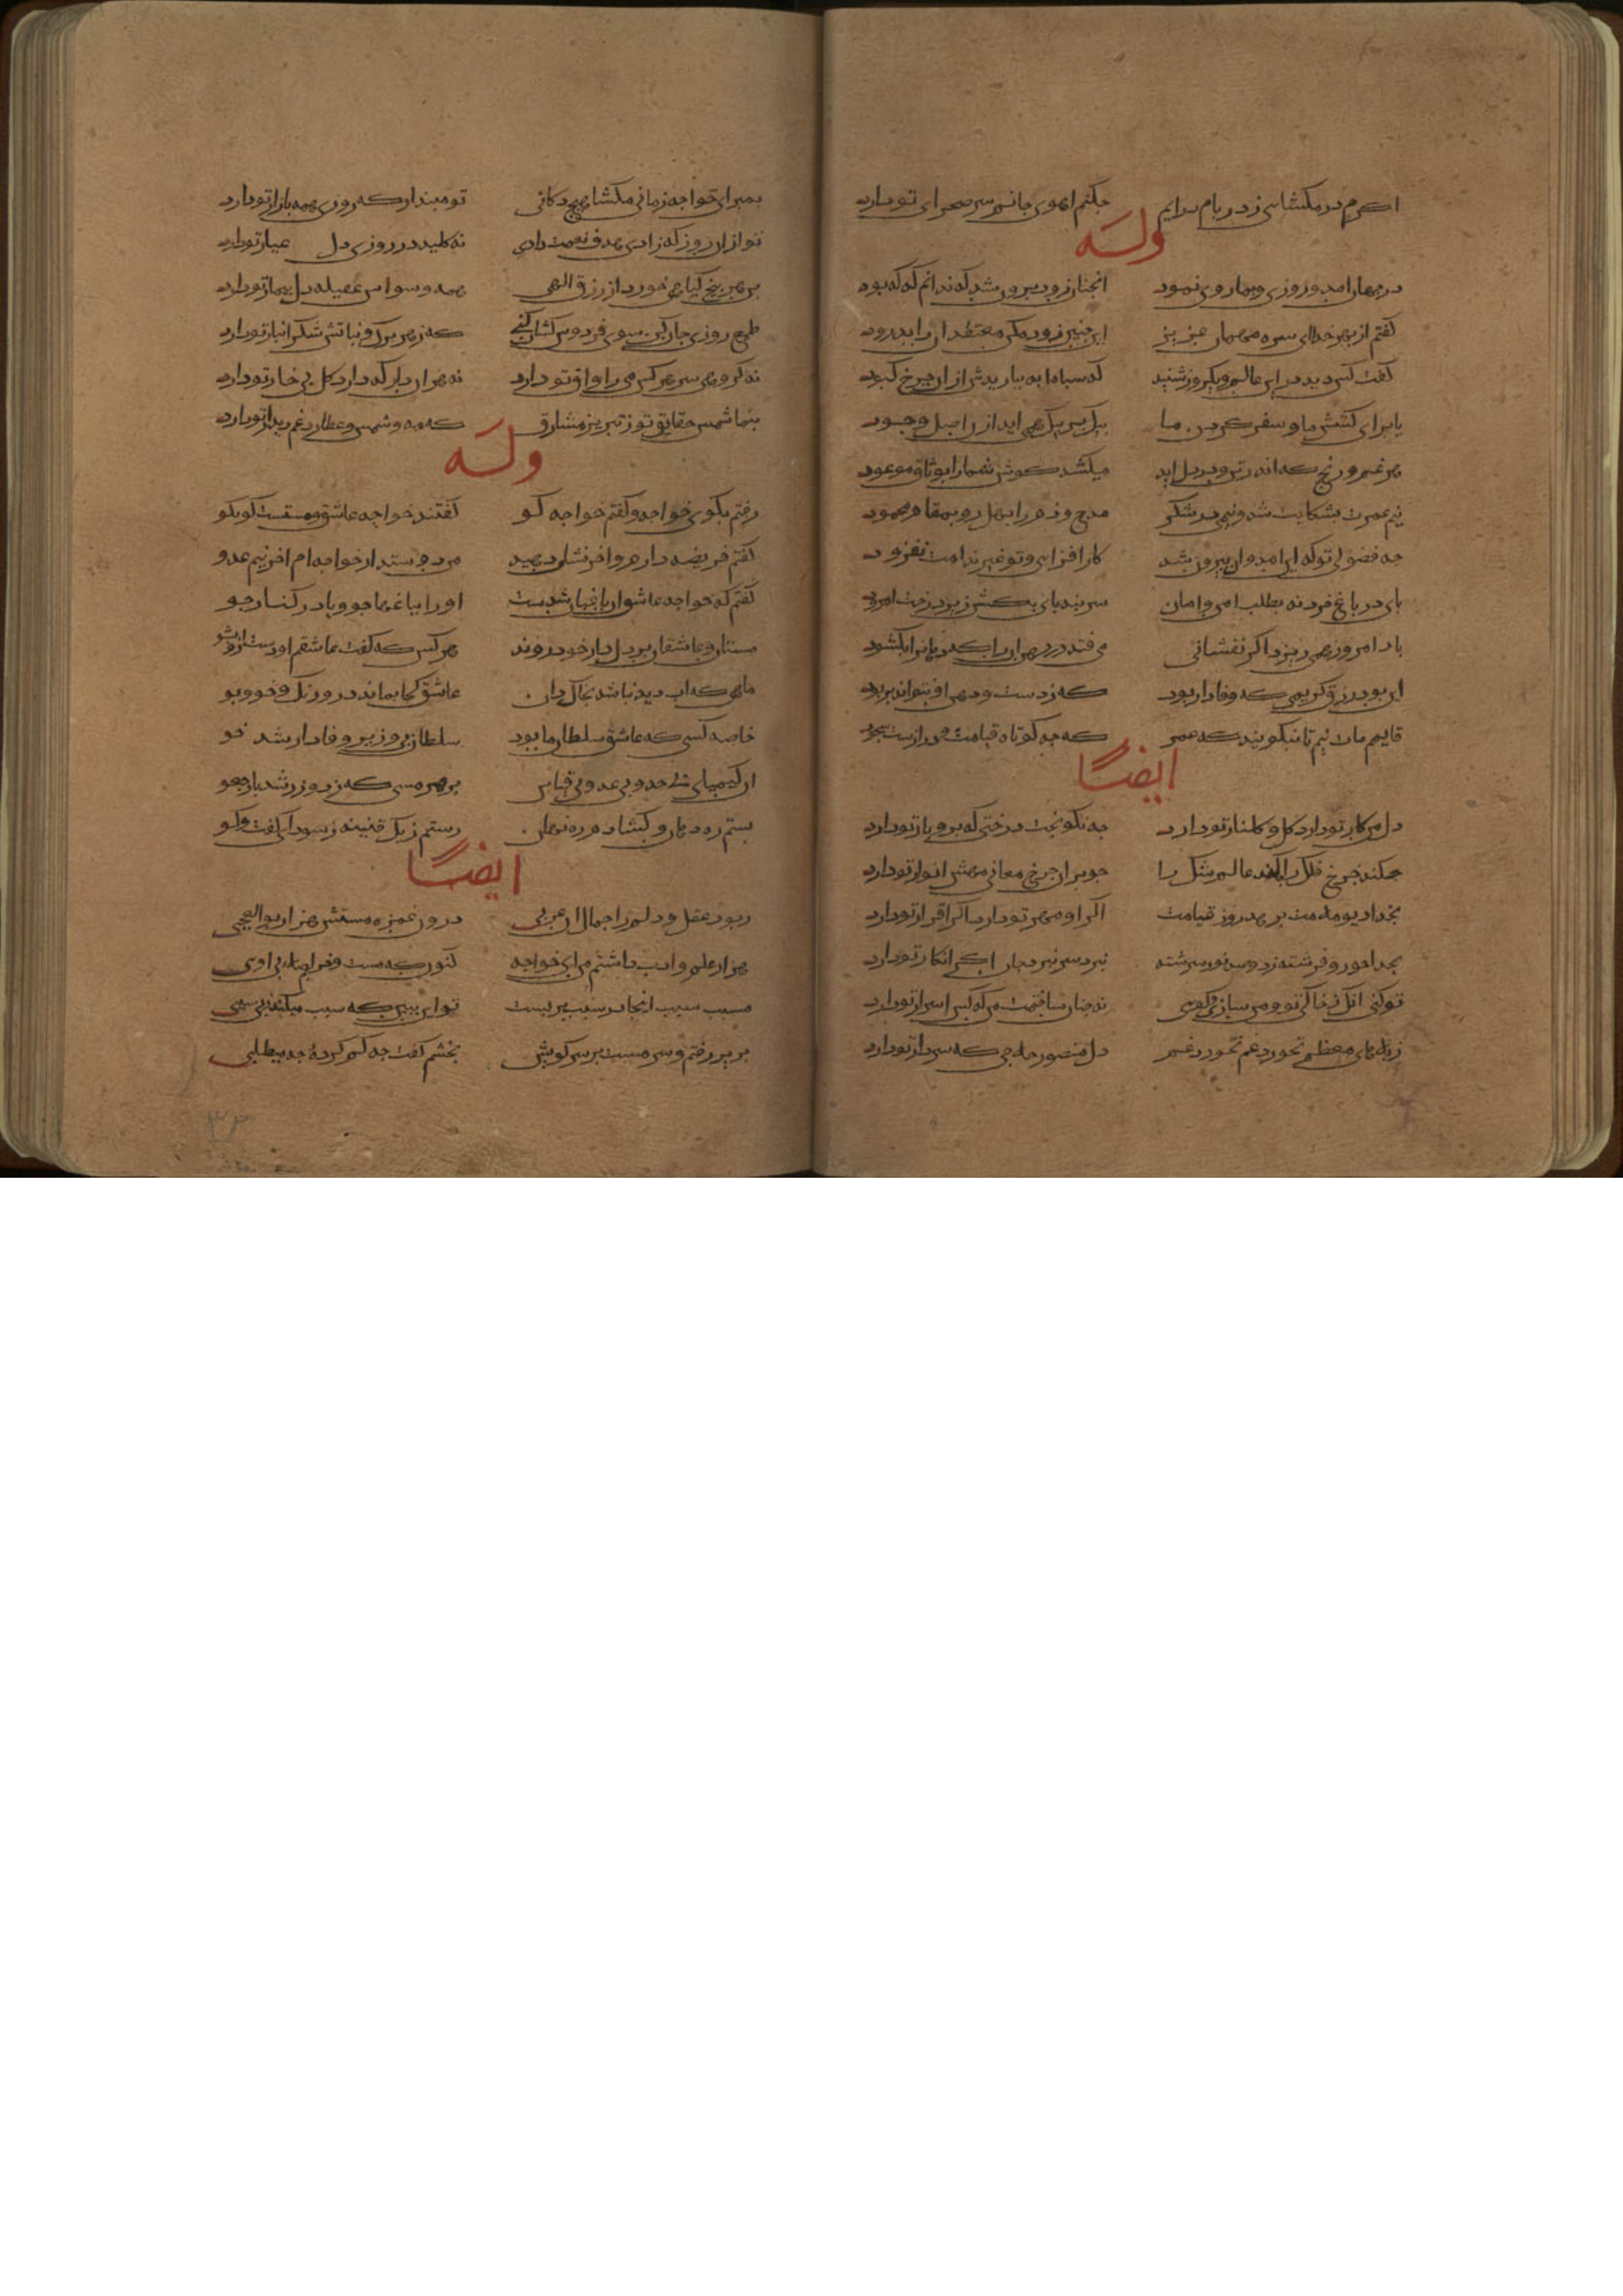 اکرم در مکشایی ز در بام درایم جکنم اهوی جانم سر صحرای تو دارد
وله
در جهان امد و روزی دو بما روی نمود انجنان زود برون شد که ندانم که که بود
کفتم از بهر خدا ای سره مهمان عزیز این جنین زود مکن معتقدان را بدرود
کفت کس دید در این عالم و یکروز شنید که سیاه ابه نیاریدش از ان جرخ کبود
یا برای کشش ما و سفر کردن ما بیک بر بیک همی اید از اصل وجود
هر غم و رنج که اندر تن و بر دل اید میکشد کوش شما را بوثاق موعود
نیم عمرت بشکایت شد و نیمی در شکر مدح و ذم را بهل رو بمقام محمود
جه فضولی تو که این امد و ان بیرون شد کار افزایی و تو غیر ندامت نفزود
بای در باغ خرد نه بطلب امن و امان سر بنه بای بکش زیر درخت امرود
باد امروز همی ریزد اکر نفشانی می فتد در دهن ان را که دهان را بکشود
این بود رزق کریمی که وفادار بود که ز دست و دهن او نتواند بربود
قایمم مات نیم تا نبکویند که عمر که جه کوتاه قیامت می درازست بجود
ایضا
دل من کار تو دارد کل و کلنار تو دارد جه نکو بخت درختی که بر و بار تو دارد
جکند جرخ فلک را بکند عالم شک را جو بر ان جرخ معانی مهش انوار تو دارد
بخدا دیو ملامت برهد روز قیامت اکر او مهر تو دارد اکر اقرار تو دارد
بخدا حور و فرشته ز دو صد نور سرشته نبرد سر نبرد جان اکر انکار تو دارد
تو کئی انک ز خاکی تو و من سازی و کویی نه جنان ساختمت من که کس اسرار تو دارد
ز بلاهای معظم نخورد غم نخورد غم دل منصور حلاجی که سر دار تو دارد
بمیر ای خواجه زمانی مکشا هیج دکانی تو مبندار که روزی همه بازار تو دارد
تو از ان روز که زادی هدف نعمت دادی نه کلید در روزی دل عیار تو دارد
بر هر بیخ کیاهی خورد از رزق الهی همه وسواس عقیله دل بیمار تو دارد
طمع روزی جان کن سوی فردوس کشان کن که ز هر برک و نباتش شکر انبار تو دارد
نه کدوی سر هر کس می راواق تو دارد نه هر ان دل که دارد کل بی خار تو دارد
بنما شمس حقایق تو ز تبریز مشارق که مه و شمس و عطارد غم دیدار تو دارد
وله
رفتم بکوی خواجه و کفتم خواجه کو کفتند خواجه عاشق و مستست کو بکو
کفتم فریضه دارم و اخر نشان دهید من دوستدار خواجه ام اخر نیم عدو
کفتم که خواجه عاشق ان باغبان شدست او را بباغها جو و یا در کنار جو
مستان و عاشقان بر دلدار خود روند هر کس که کفت عاشقم او دست ازو بشو
ماهی که اب دید نباشد بخاکدان عاشق کجا بماند در دور نک و خو و بو
خاصه کسی که عاشق سلطان ما بود سلطان بی وزیر وفادار شد خو
ان کیمیای بی حد و بی عد و بی قیاس بر هر مسی که زد و زر شد بارجعو
بستم ره دهان و کشادم ره نهان رستم ز یک قنینه ز سودای کفت و کو
ایضا
ربود عقل و دلم را جمال ان عربی درون غمزه مستش هزار بوالعجبی
هزار علم و ادب داشتم من ای خواجه کنون که مست و خرابم صلای بی ادبی
مسبب سبب اینجا در سبب بربست تو این ببین که سبب میکند بی سببی
بریر رفتم و سر مست بر سر کویش بخشم کفت جه کم کرده جه میطلبی